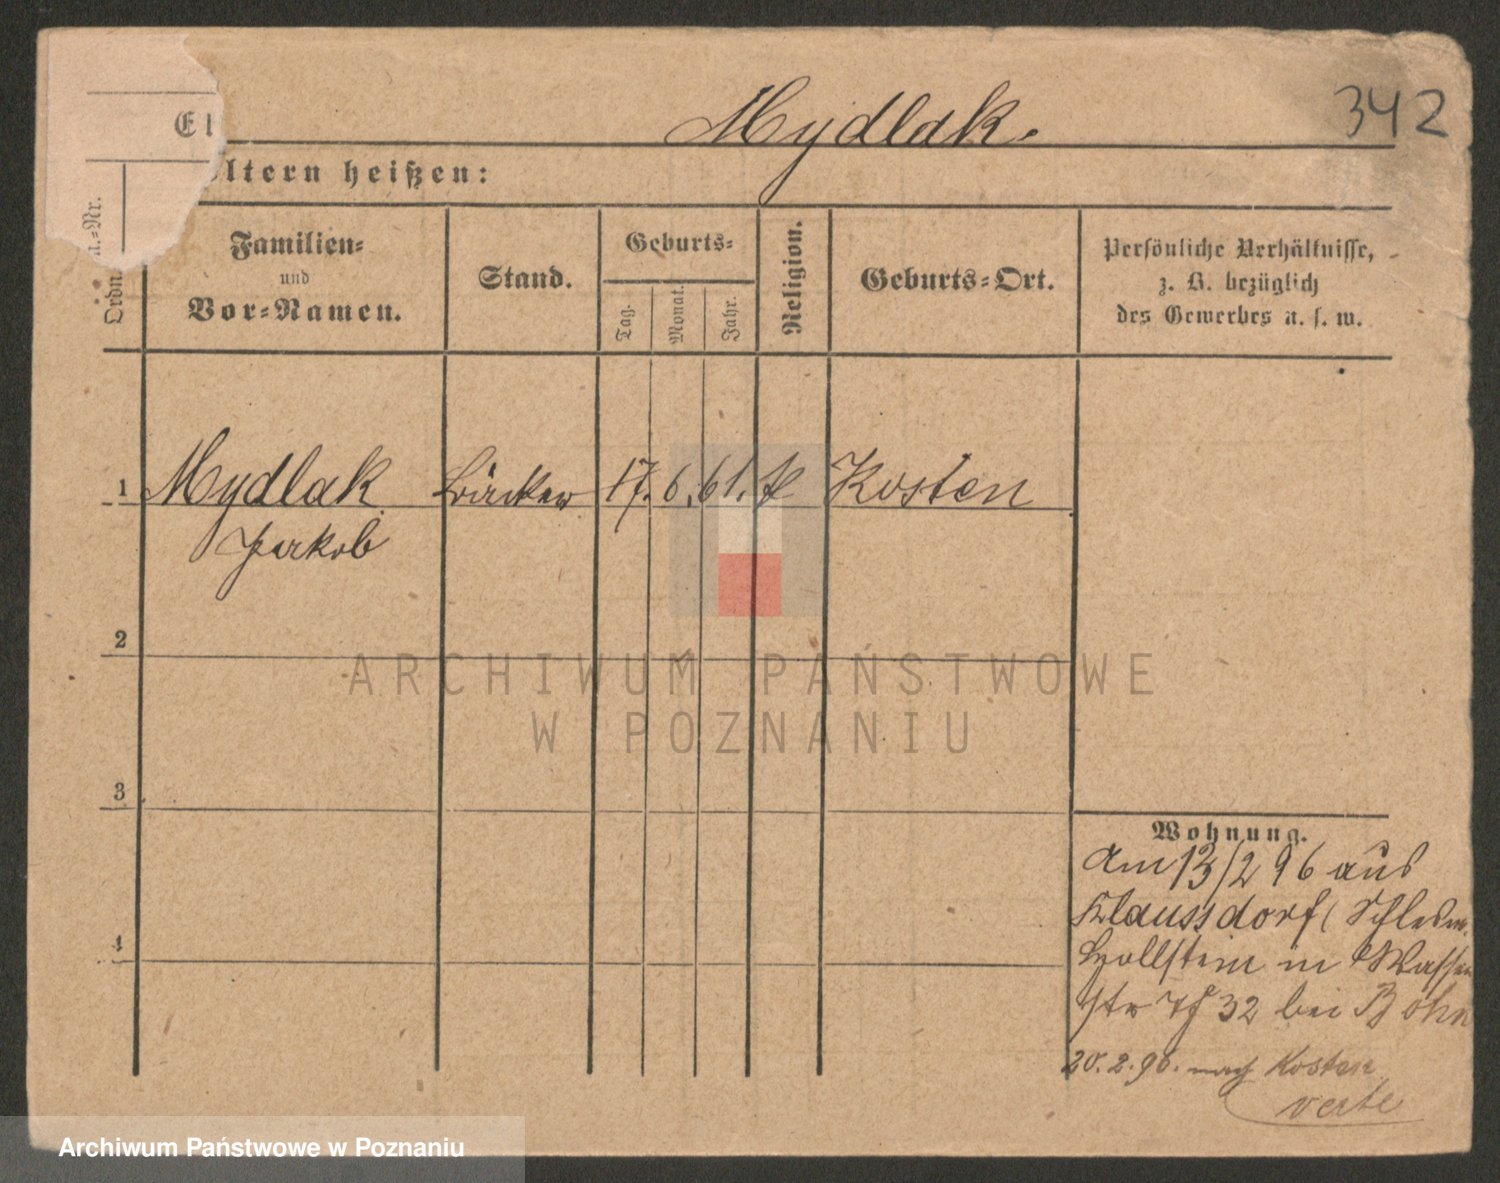 Mydlak.
342
El
ltern heißen:
Ordn
u.-Nr.
Familien-
und
Vor-Namen.
Stand.
Geburts-
Tag.
Monat.
Jahr.
Religion.
Geburts-Ort.
Persönliche Verhältnisse,
z. B. bezüglich
des Gewerbes u. s. w.
1 Mydlak Bäcker 17. 6. 61. Kosten
Jakob
2
3
4
Wohnung.
Am 13/2 96 aus
Klaussdorf (Schlesw.
Hollstein in Wasser
str 32 bei Bohn
20. 2. 96. nach Kosten
verte
ARCHIWUM PAŃSTWOWE
W POZNANIU
Archiwum Państwowe w Poznaniu